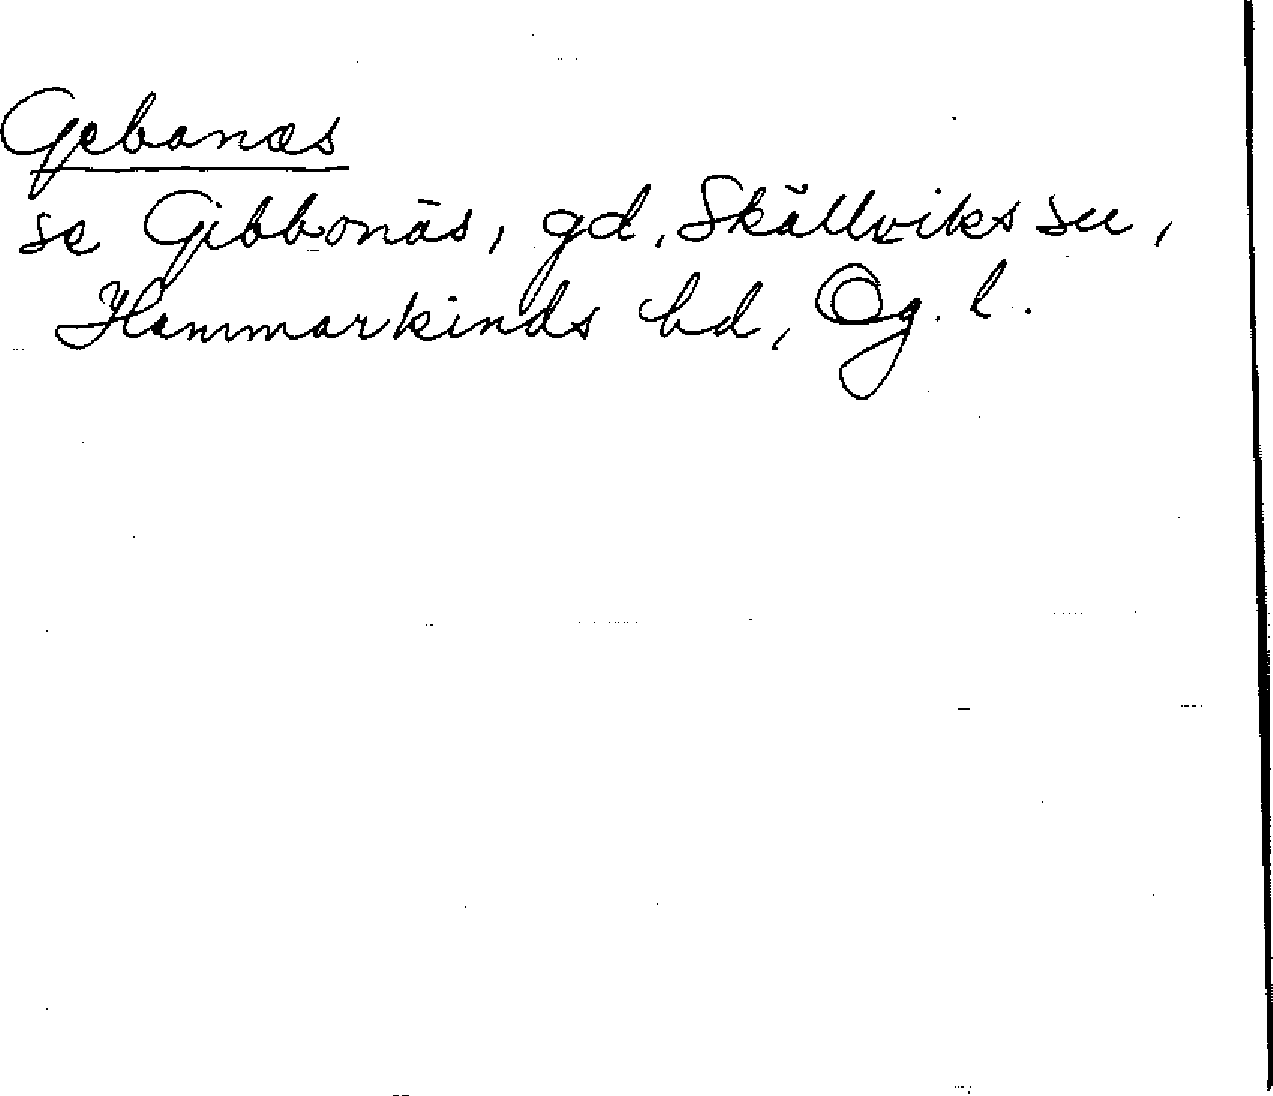 Gebanæs
se Gibbonäs, gd, Skällviks sn,
Hammarkinds hd, Ög. l.